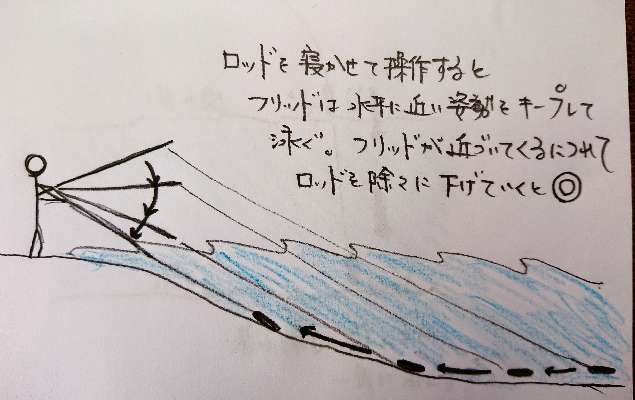 ロッドを寝かせて操作すると
フリッドは水平に近い姿勢をキープして
泳ぐ。フリッドが近づいてくるにつれて
ロッドを除々に下げていくと◎